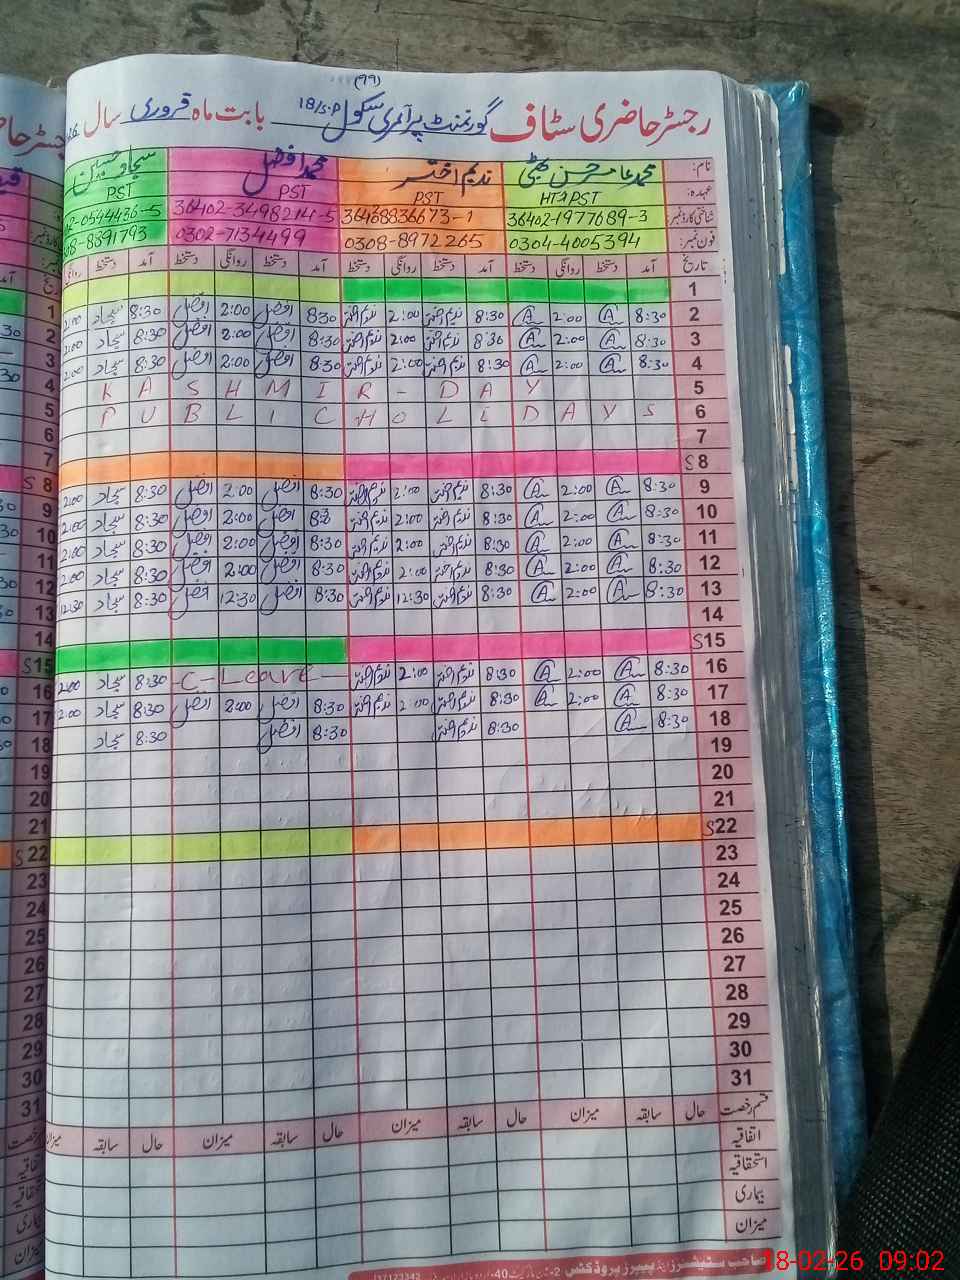 (99)
رجسٹر حاضری سٹاف گورنمنٹ پرائمری سکول 18/S.P بابت ماہ فروری سال
نام: محمد عامر حسن بھٹی ندیم اختر محمد افضل سجاد حسین
عہدہ: HT/PST PST PST PST
شناختی کارڈ نمبر: 36402-1977689-3 36468836673-1 36402-3498214-5 2-0544436-5
فون نمبر: 0304-4005394 0308-8972265 0302-7134499 08-8391793
تاریخ آمد دستخط روانگی دستخط آمد دستخط روانگی دستخط آمد دستخط روانگی دستخط آمد دستخط روانگی
1
2 8:30 2:00 8:30 ندیم اختر 2:00 ندیم اختر 8:30 افضل 2:00 افضل 8:30 سجاد 2:00
3 8:30 2:00 8:30 ندیم اختر 2:00 ندیم اختر 8:30 افضل 2:00 افضل 8:30 سجاد 2:00
4 8:30 2:00 8:30 ندیم اختر 2:00 ندیم اختر 8:30 افضل 2:00 افضل 8:30 سجاد 2:00
KASHMIR-DAY 5
PUBLIC HOLIDAYS 6
7
S 8
9 8:30 2:00 8:30 ندیم اختر 2:00 ندیم اختر 8:30 افضل 2:00 افضل 8:30 سجاد 2:00
10 8:30 2:00 8:30 ندیم اختر 2:00 ندیم اختر 8:30 افضل 2:00 افضل 8:30 سجاد 2:00
11 8:30 2:00 8:30 ندیم اختر 2:00 ندیم اختر 8:30 افضل 2:00 افضل 8:30 سجاد 2:00
12 8:30 2:00 8:30 ندیم اختر 2:00 ندیم اختر 8:30 افضل 2:00 افضل 8:30 سجاد 2:00
13 8:30 2:00 8:30 ندیم اختر 12:30 ندیم اختر 8:30 افضل 12:30 افضل 8:30 سجاد 12:30
14
S 15
16 8:30 2:00 8:30 ندیم اختر 2:00 ندیم اختر -C-Leave- 8:30 سجاد 2:00
17 8:30 2:00 8:30 ندیم اختر 2:00 ندیم اختر 8:30 افضل 2:00 افضل 8:30 سجاد 2:00
18 8:30 8:30 ندیم اختر 8:30 افضل 8:30 سجاد
19
20
21
S 22
23
24
25
26
27
28
29
30
31
قسم رخصت حال سابقہ میزان حال سابقہ میزان حال سابقہ میزان حال سابقہ میزان
اتفاقیہ
استحقاقیہ
بیماری
میزان
18-02-26 09:02